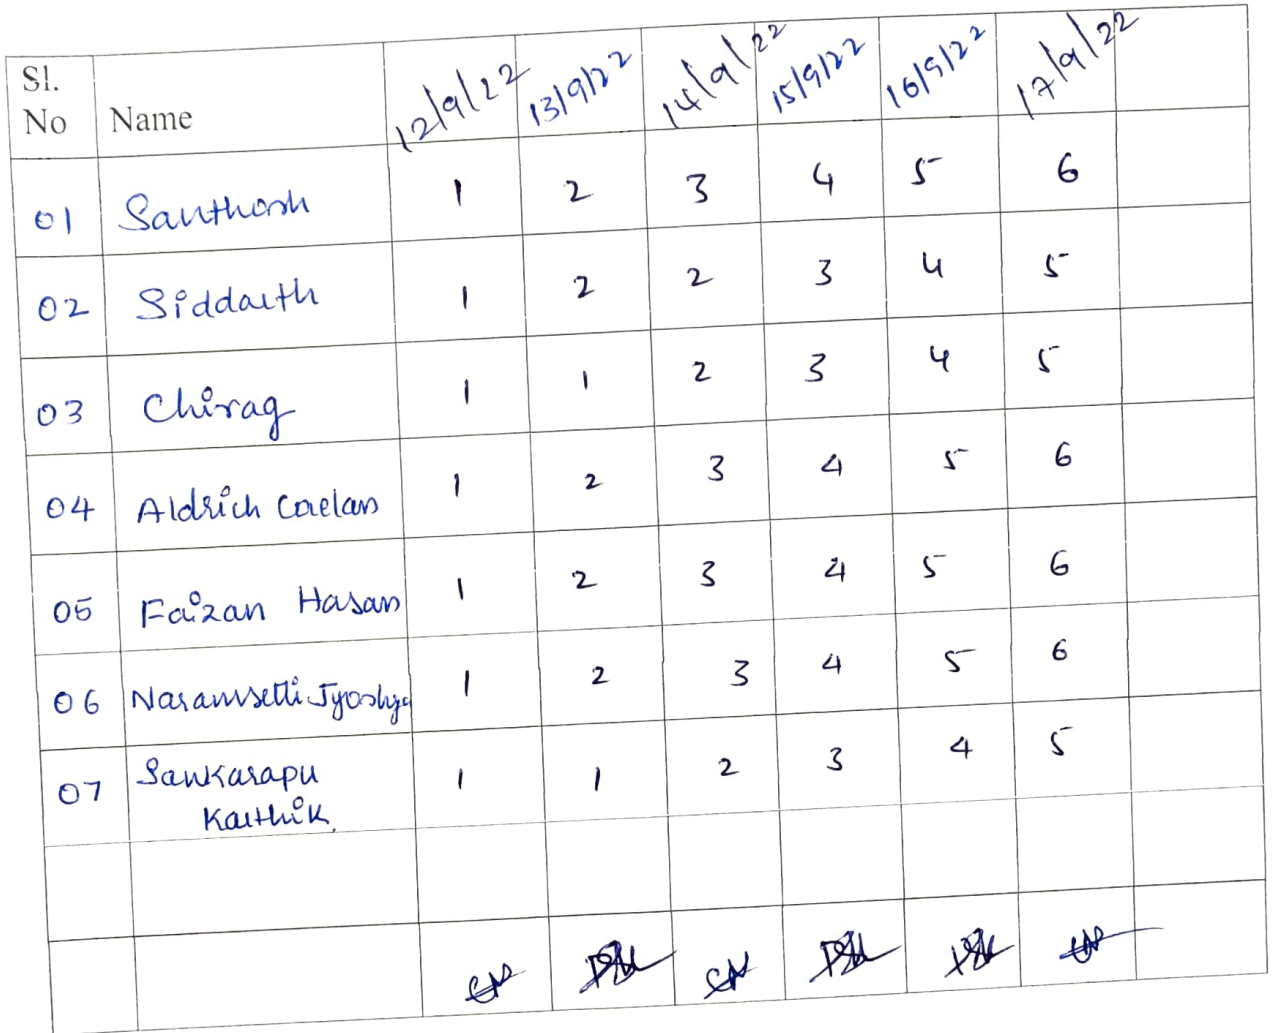 Sl.
No Name 12/9/22 13/9/22 14/9/22 15/9/22 16/9/22 17/9/22
01 Santhosh 1 2 3 4 5 6
02 Siddarth 1 2 2 3 4 5
03 Chirag 1 1 2 3 4 5
04 Aldrich Caelan 1 2 3 4 5 6
05 Faizan Hasan 1 2 3 4 5 6
06 1 2 3 4 5 6
07 Sankarapu 1 1 2 3 4 5
Karthik